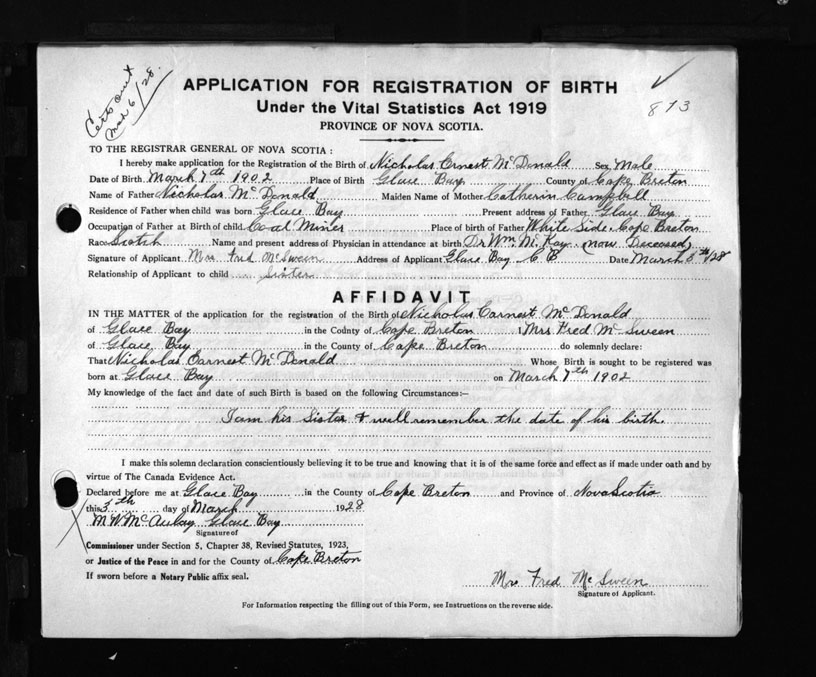 Certs out
Mch 6/28.
873
APPLICATION FOR REGISTRATION OF BIRTH
Under the Vital Statistics Act 1919
PROVINCE OF NOVA SCOTIA.
TO THE REGISTRAR GENERAL OF NOVA SCOTIA :
I hereby make application for the Registration of the Birth of Nicholas Ernest McDonald Sex Male
Date of Birth March 7th 1902 Place of Birth Glace Bay County of Cape Breton
Name of Father Nicholas McDonald Maiden Name of Mother Catherin Campbell
Residence of Father when child was born Glace Bay Present address of Father Glace Bay
Occupation of Father at Birth of child Coal Miner Place of birth of Father White Side, Cape Breton
Race Scotch Name and present address of Physician in attendance at birth Dr Wm. McKay (Now Deceased)
Signature of Applicant Mrs Fred McSween Address of Applicant Glace Bay C B Date March 5th/28
Relationship of Applicant to child Sister
AFFIDAVIT
IN THE MATTER of the application for the registration of the Birth of Nicholas Earnest McDonald
of Glace Bay in the County of Cape Breton I Mrs Fred McSween
of Glace Bay in the County of Cape Breton do solemnly declare:
That Nicholas Earnest McDonald Whose Birth is sought to be registered was
born at Glace Bay on March 7th 1902
My knowledge of the fact and date of such Birth is based on the following Circumstances:—
I am his Sister & well remember the date of his birth.
I make this solemn declaration conscientiously believing it to be true and knowing that it is of the same force and effect as if made under oath and by
virtue of The Canada Evidence Act.
Declared before me at Glace Bay in the County of Cape Breton and Province of Nova Scotia
this 5th day of March 1928
M W McAulay Glace Bay
Signature of
Commissioner under Section 5, Chapter 38, Revised Statutes, 1923,
or Justice of the Peace in and for the County of Cape Breton
If sworn before a Notary Public affix seal.
Mrs Fred McSween
Signature of Applicant.
For Information respecting the filling out of this Form, see Instructions on the reverse side.